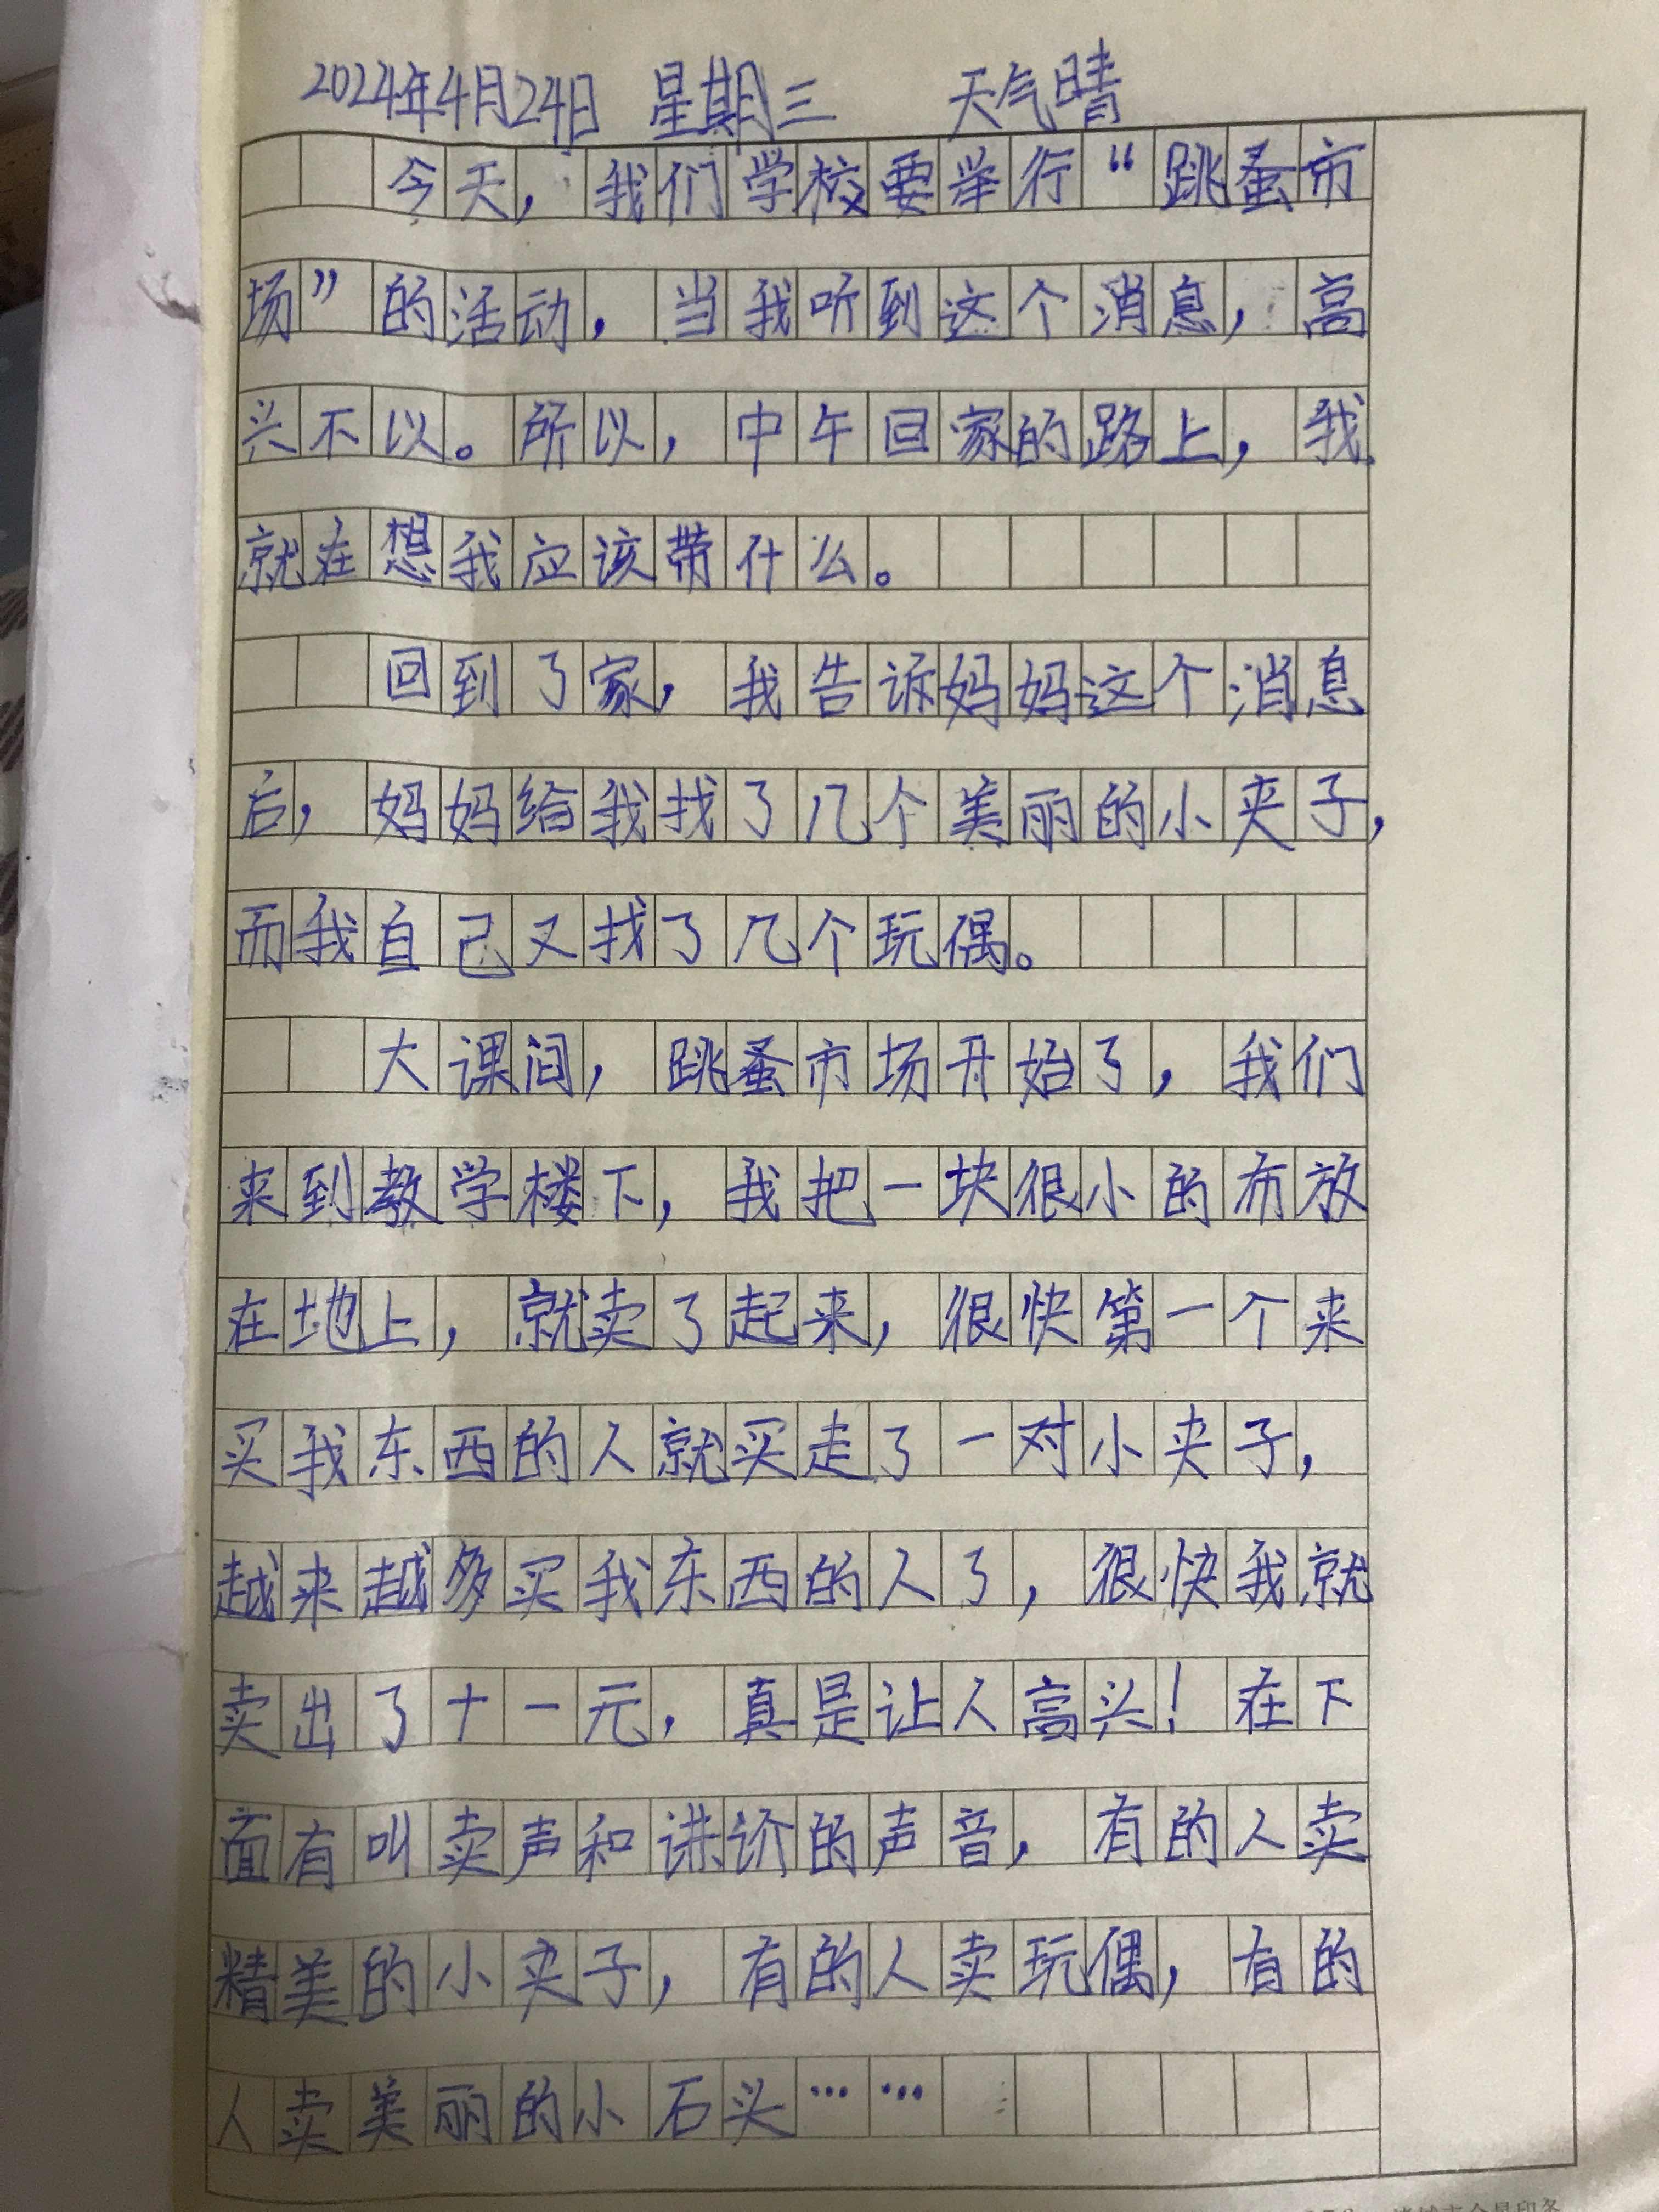 2024年4月24日 星期三 天气晴
今天，我们学校要举行“跳蚤市
场”的活动，当我听到这个消息，高
兴不以。所以，中午回家的路上，我
就在想我应该带什么。
回到了家，我告诉妈妈这个消息
后，妈妈给我找了几个美丽的小夹子，
而我自己又找了几个玩偶。
大课间，跳蚤市场开始了，我们
来到教学楼下，我把一块很小的布放
在地上，就卖了起来，很快第一个来
买我东西的人就买走了一对小夹子，
越来越多买我东西的人了，很快我就
卖出了十一元，真是让人高兴！在下
面有叫卖声和讲价的声音，有的人卖
精美的小夹子，有的人卖玩偶，有的
人卖美丽的小石头……